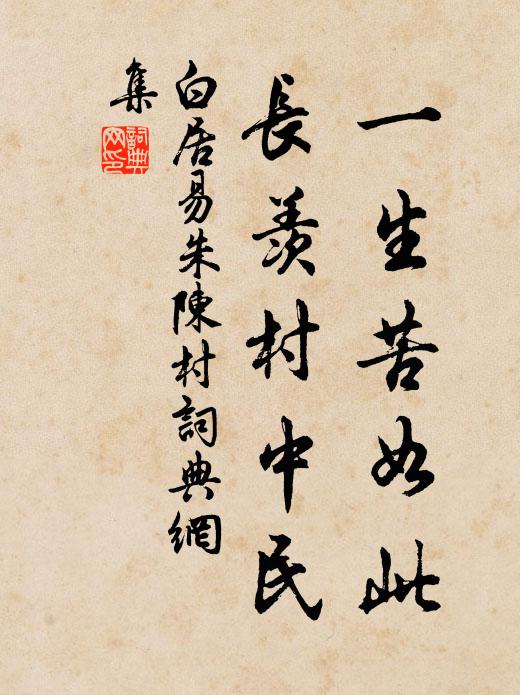 一生苦如此
長羨村中民
白居易朱陳村詞典網
集
詞典網印